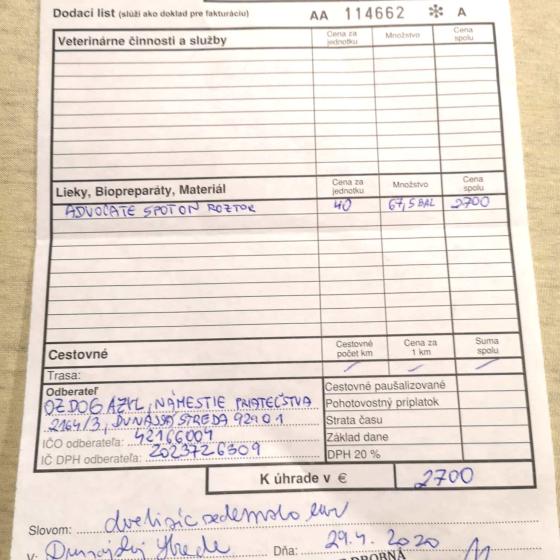 Dodací list (slúži ako doklad pre fakturáciu) AA 114662 ✻ A
Veterinárne činnosti a služby Cena za jednotku Množstvo Cena spolu
Lieky, Biopreparáty, Materiál Cena za jednotku Množstvo Cena spolu
ADVOCATE SPOTON ROZTOK 40 67,5 BAL 2700
Cestovné Cestovné počet km Cena za 1 km Suma spolu
Trasa:
Odberateľ Cestovné paušalizované
OZ DOG AZYL, NÁMESTIE PRIATEĽSTVA Pohotovostný príplatok
2164/3, DUNAJSKÁ STREDA 929 01 Strata času
IČO odberateľa: 42166004 Základ dane
IČ DPH odberateľa: 2023726309 DPH 20 %
K úhrade v € 2700
Slovom: dvetisíc sedemsto eur
V: Dunajskej Strede Dňa: 29.4.2020